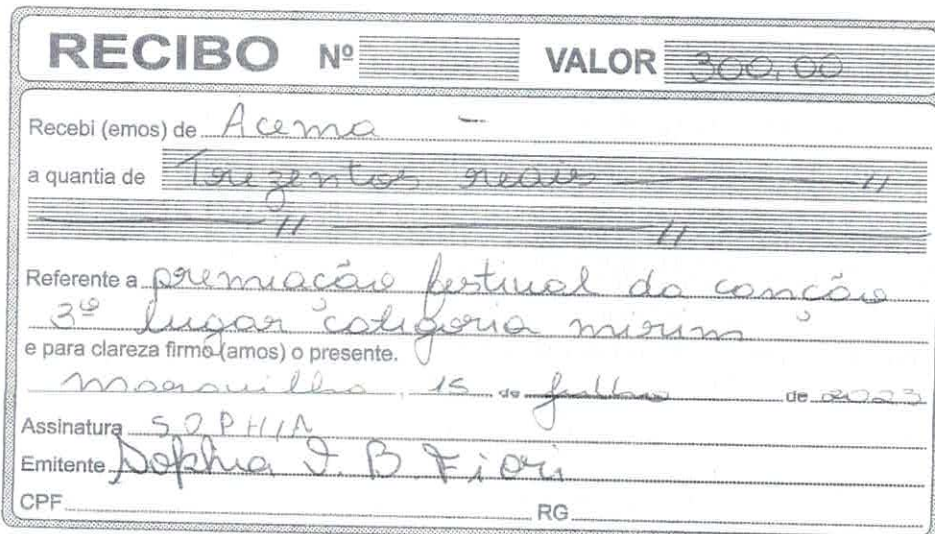 RECIBO Nº VALOR 300,00
Recebi (emos) de Acema -
a quantia de Trezentos reais — //
— // — // —
Referente a premiação festival da canção
3º lugar categoria mirim
e para clareza firmo (amos) o presente.
Maravilha, 15 de julho de 2023
Assinatura SOPHIA
Emitente Sophia I. B Fiori
CPF RG